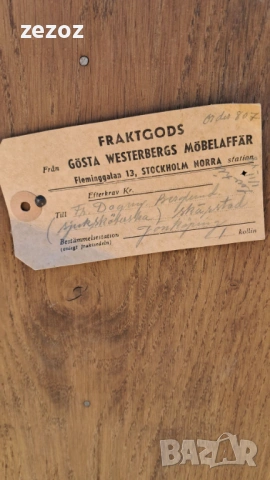 zezoz
Order 807
FRAKTGODS
Från GÖSTA WESTERBERGS MÖBELAFFÄR
Fleminggatan 13, STOCKHOLM NORRA station
Efterkrav Kr.
Till Fr. Dagny Berglund
(sjuksköterska)
Bestämmelsestation Jönköping
(enligt fraktsedeln)
kollin
BAZAR.bg